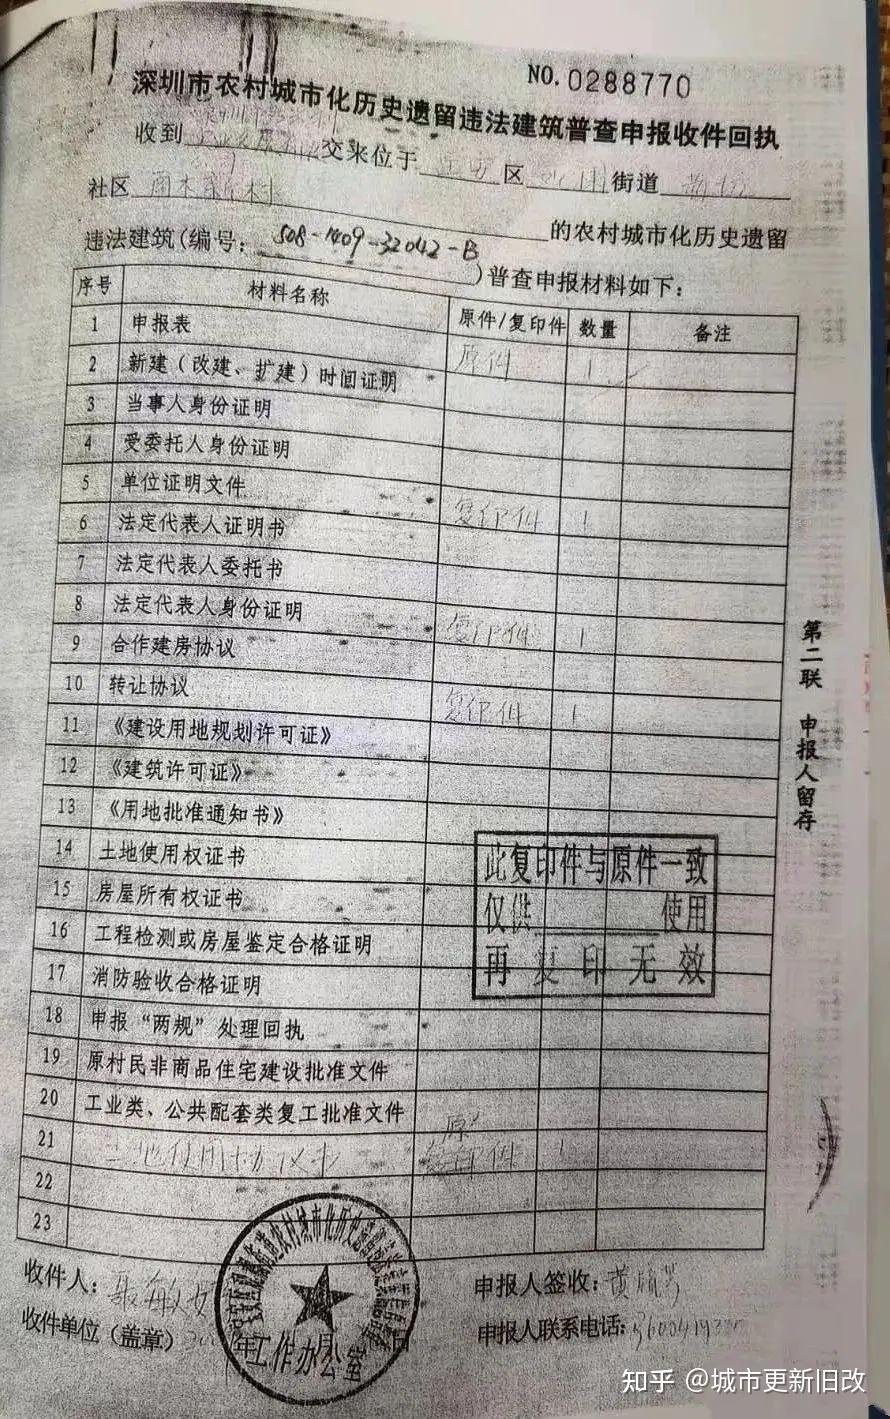 NO.0288770
深圳市农村城市化历史遗留违法建筑普查申报收件回执
收到 交来位于 区 街道
社区 南木新村 的农村城市化历史遗留
违法建筑(编号: 508-1409-32042-B )普查申报材料如下:
序号 材料名称 原件/复印件 数量 备注
1 申报表 原件 1
2 新建(改建、扩建)时间证明
3 当事人身份证明
4 受委托人身份证明
5 单位证明文件 复印件 1
6 法定代表人证明书
7 法定代表人委托书
8 法定代表人身份证明 复印件 1
9 合作建房协议
10 转让协议 复印件 1
11 《建设用地规划许可证》
12 《建筑许可证》
13 《用地批准通知书》
14 土地使用权证书
15 房屋所有权证书
16 工程检测或房屋鉴定合格证明
17 消防验收合格证明
18 申报“两规”处理回执
19 原村民非商品住宅建设批准文件
20 工业类、公共配套类复工批准文件
21 土地使用协议书 原 复印件 1
22
23
此复印件与原件一致
仅供 使用
再复印无效
第二联 申报人留存
收件人: 申报人签收:
收件单位(盖章) 年 月 日 申报人联系电话:
工作办公室
知乎 @城市更新旧改